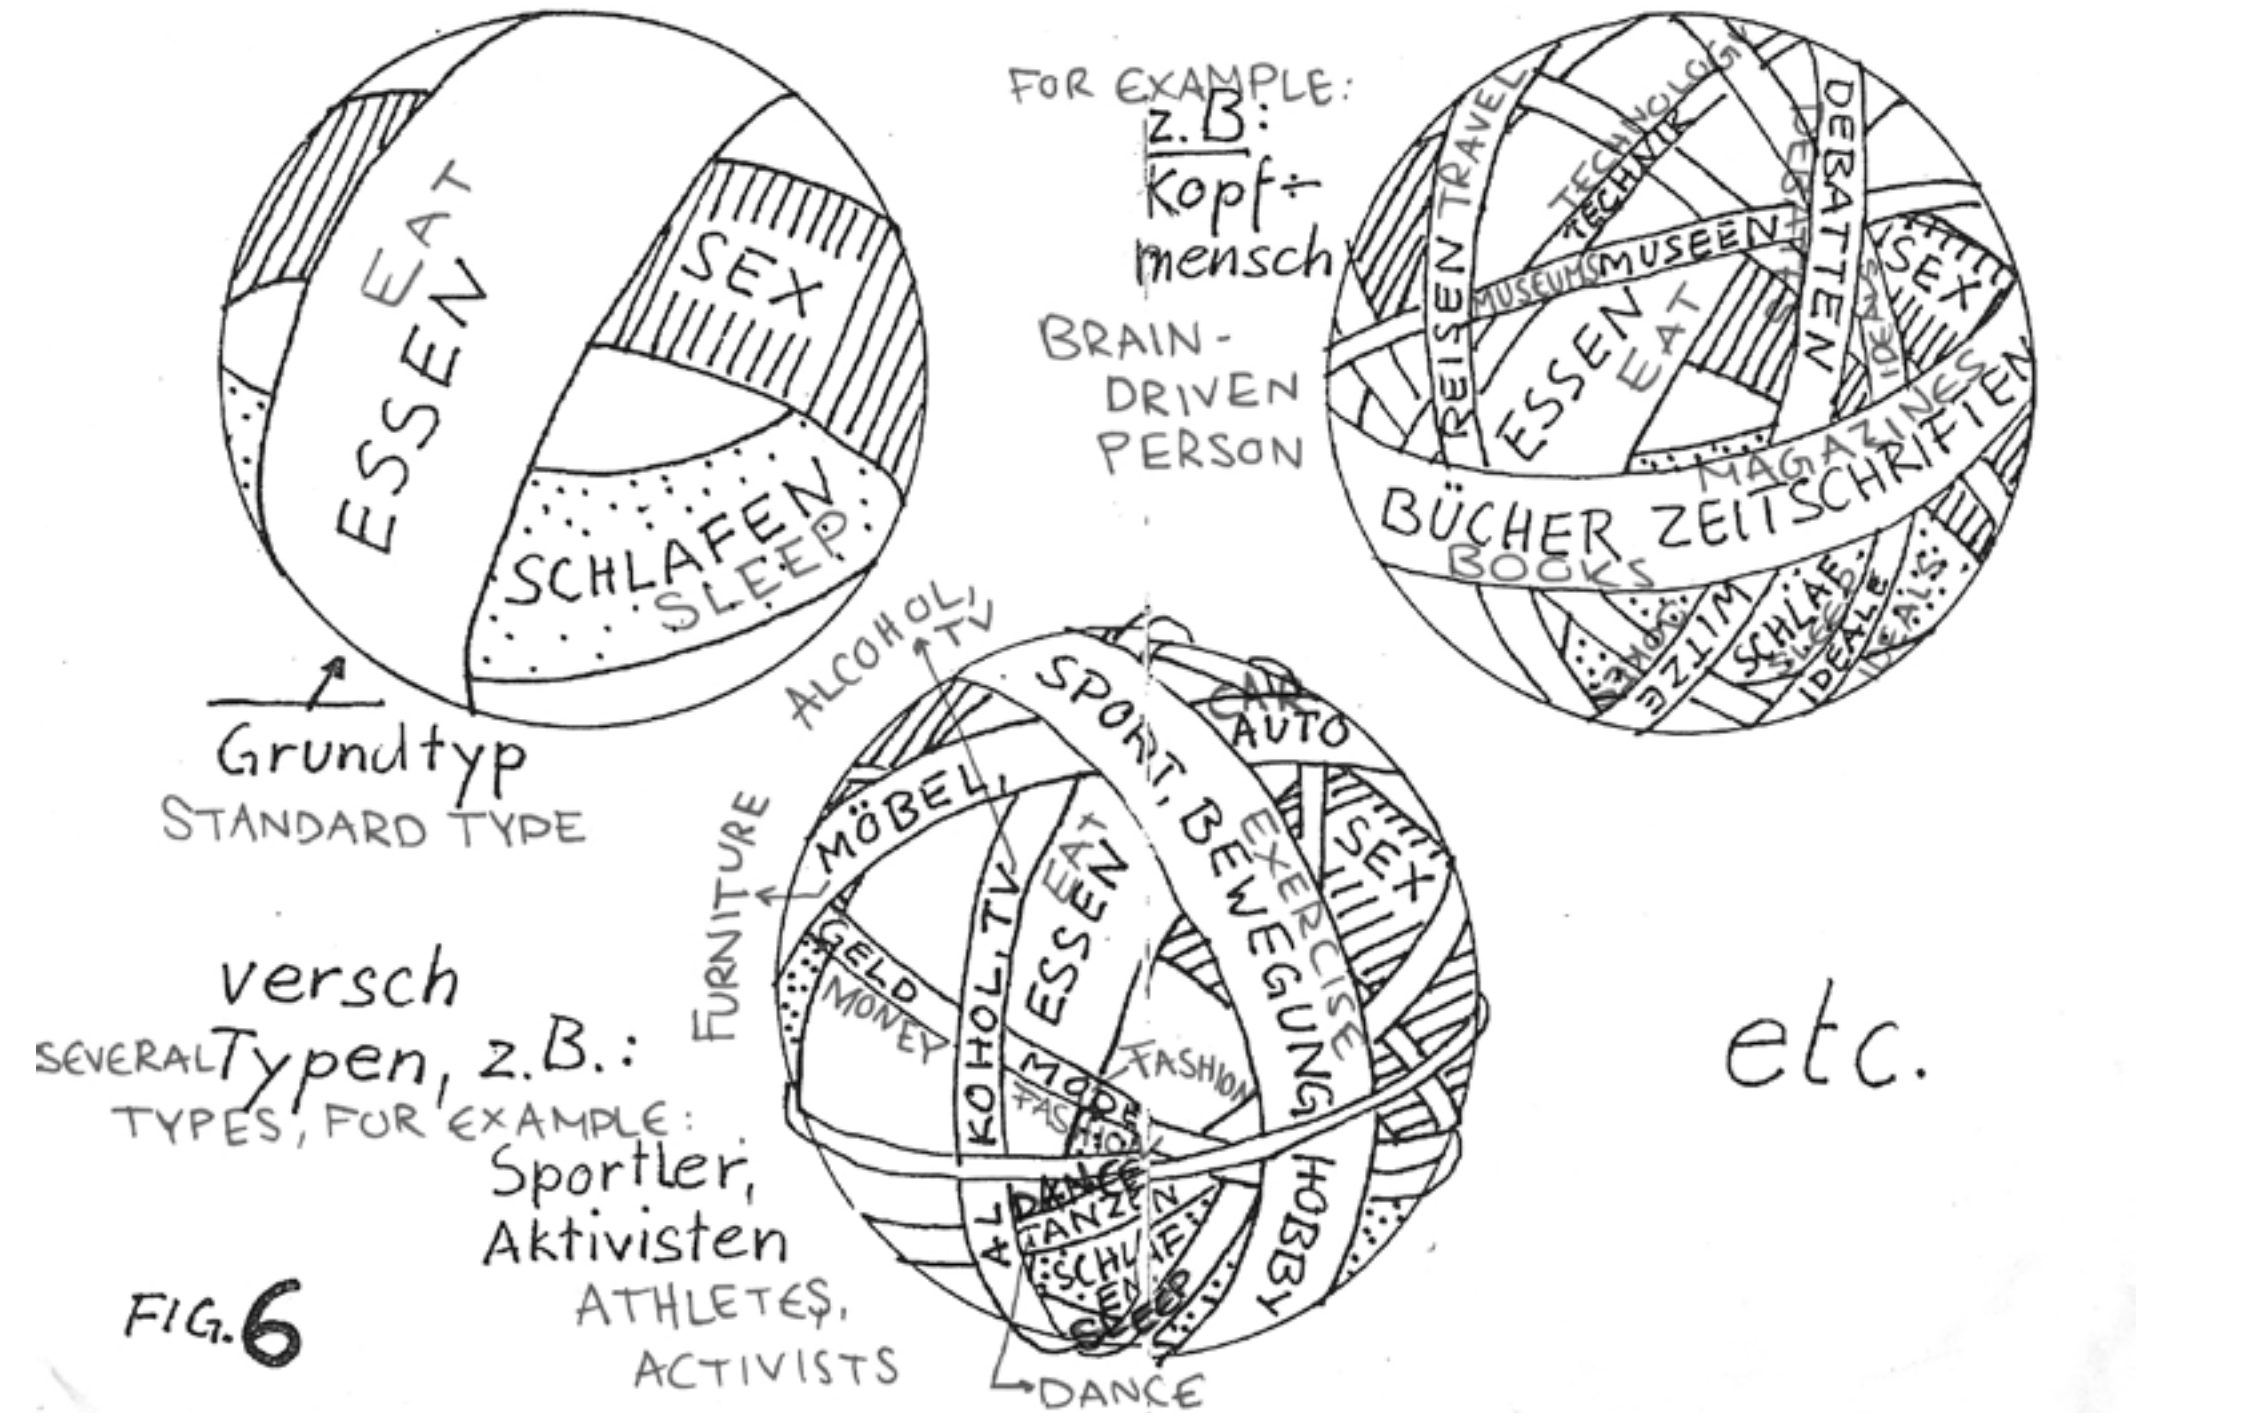 EAT
ESSEN
SEX
SCHLAFEN
SLEEP
Grundtyp
STANDARD TYPE
FOR EXAMPLE:
z.B:
Kopf÷
mensch
BRAIN-
DRIVEN
PERSON
REISEN TRAVEL
TECHNOLOGY
TECHNIK
MUSEUMS MUSEEN
DEBATTEN
DEBATES
ESSEN
EAT
SEX
IDEALS
MAGAZINES
BÜCHER ZEITSCHRIFTEN
BOOKS
JOKES
WITZE
SCHLAF
SLEEP
IDEALE
IDEALS
versch
SEVERAL Typen, z.B.:
TYPES, FOR EXAMPLE:
Sportler,
Aktivisten
ATHLETES,
ACTIVISTS
ALCOHOL,
TV
FURNITURE
SPORT, BEWEGUNG HOBBY
EXERCISE
CAR
AUTO
MÖBEL,
SEX
EAT
ESSEN
GELD
MONEY
ALKOHOL, TV
MODE
FASHION
FASHION
DANCE
TANZEN
SCHLAF
EN
SLEEP
DANCE
etc.
FIG. 6